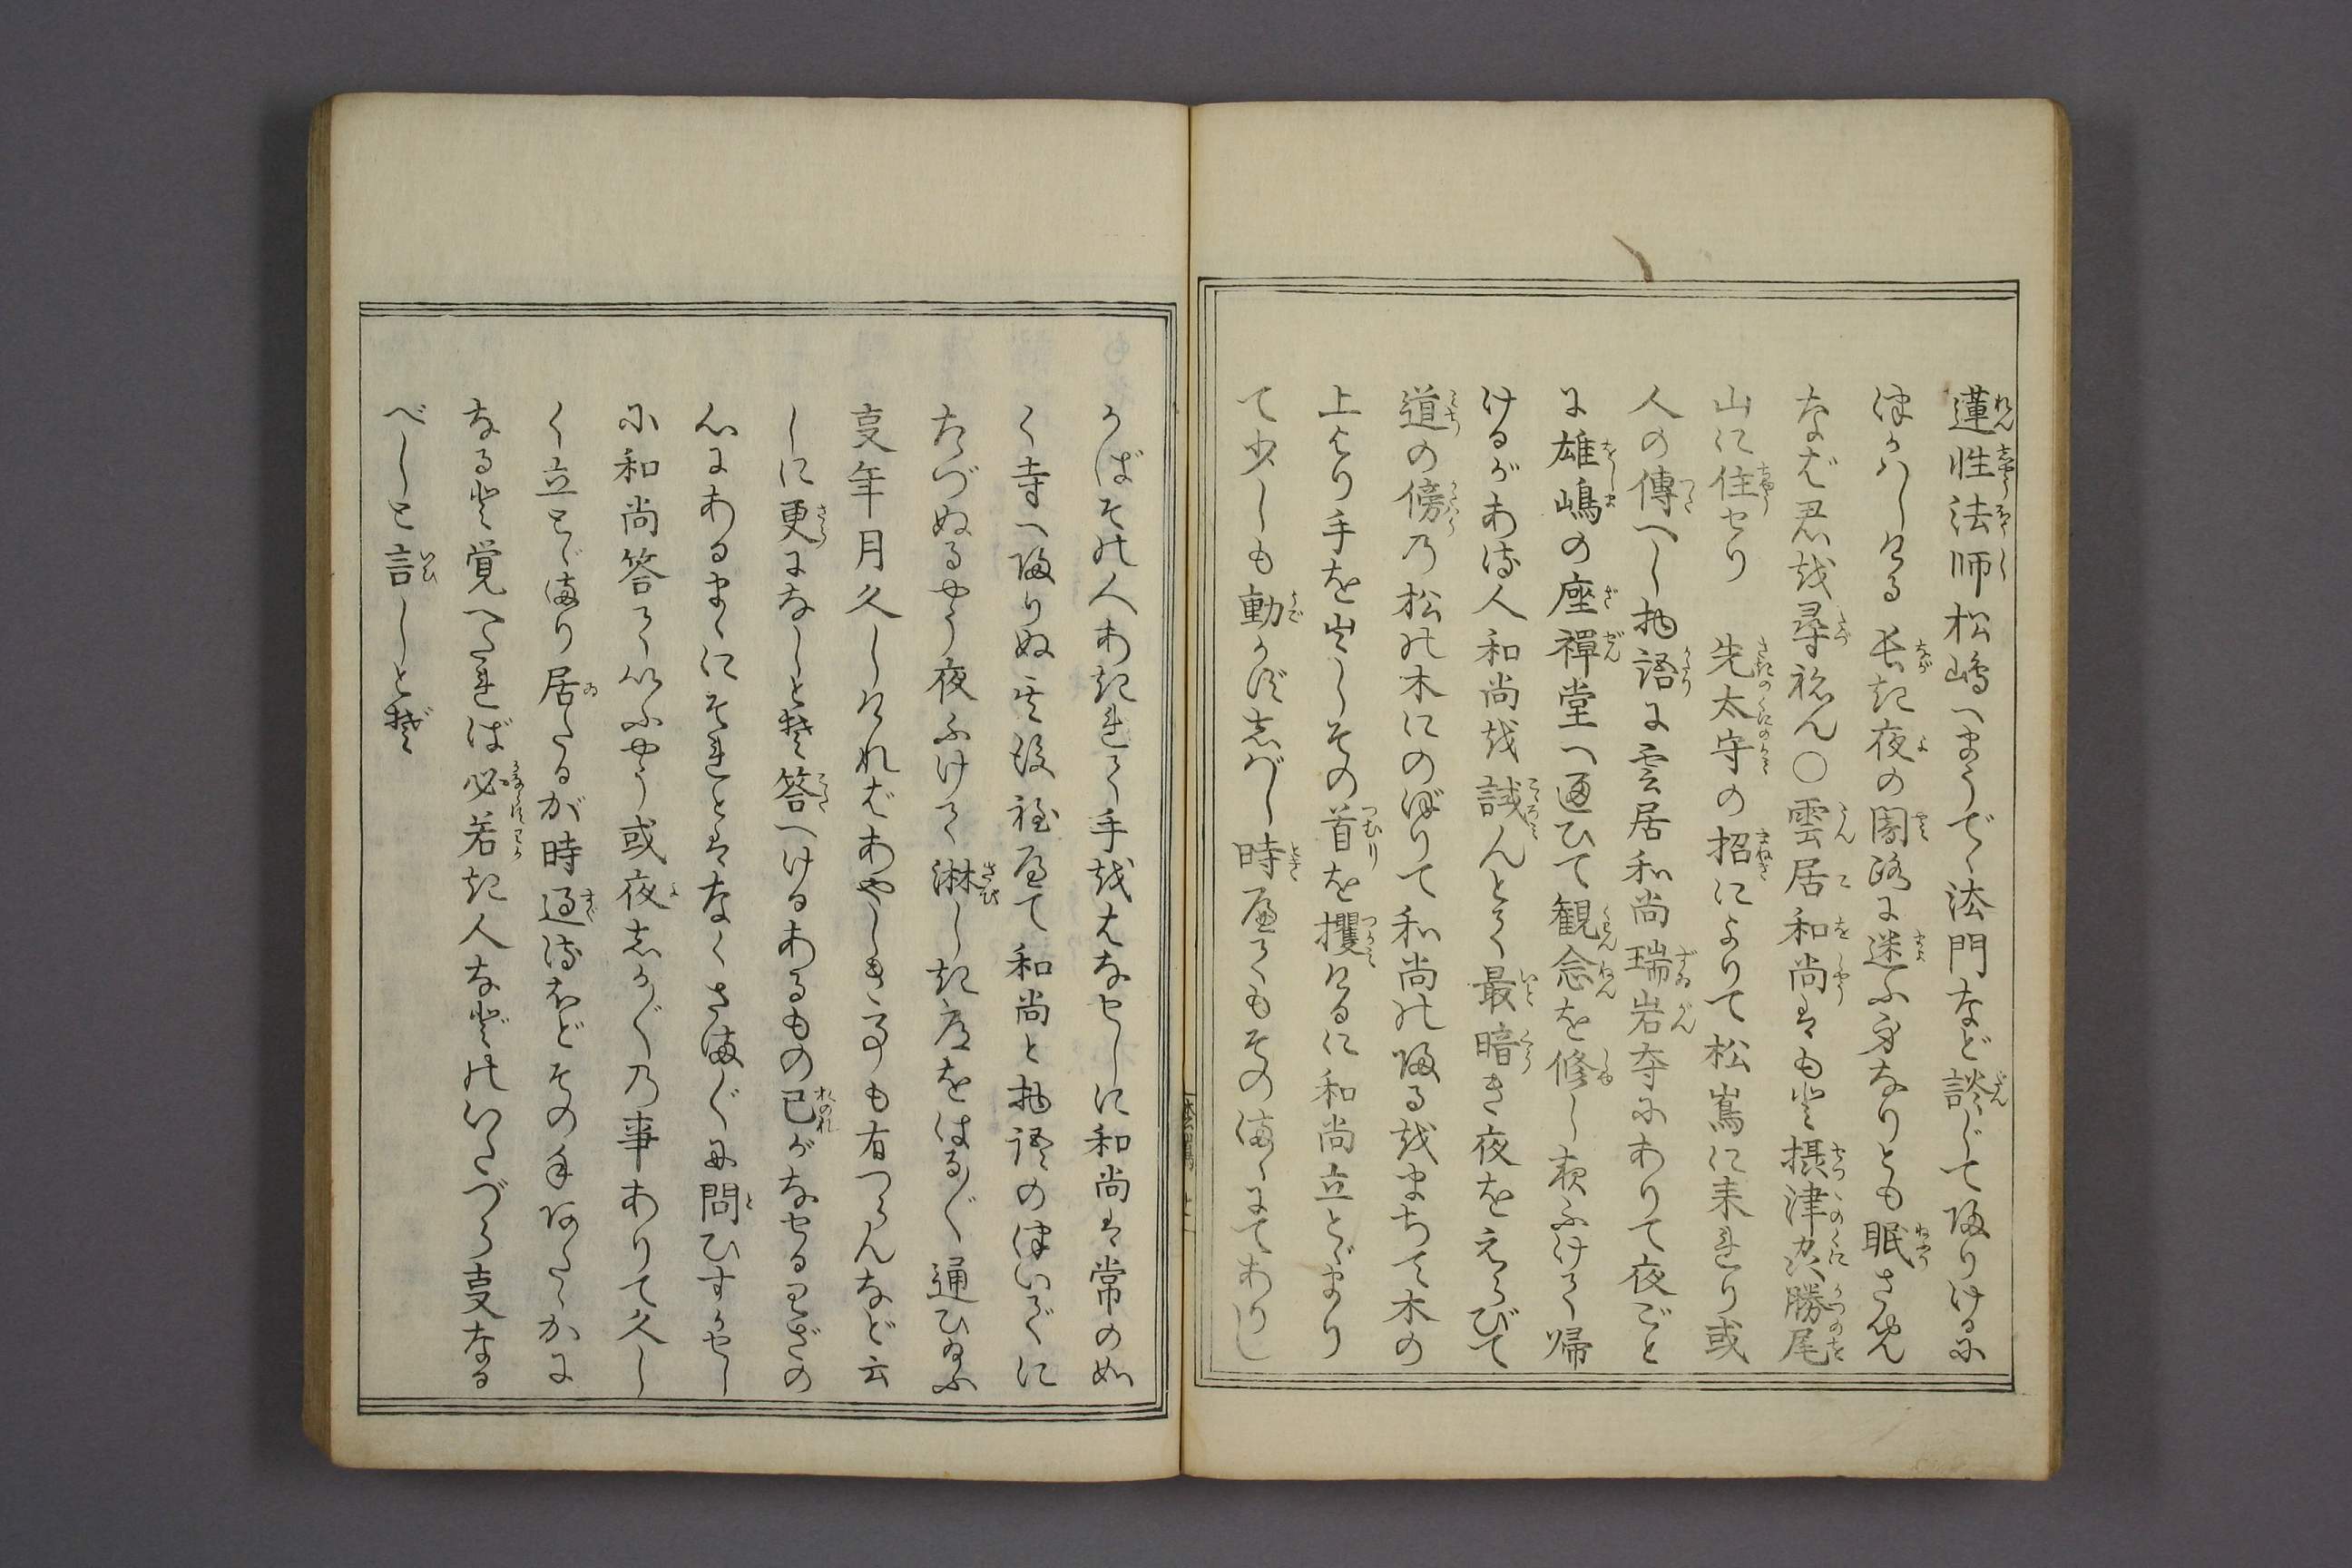 蓮性法師松嶋へまうでゝ法門など談じて帰りけるに
つかはしける　長き夜の闇路に迷ふ身なりとも眠さめ
なば君を尋ねん○雲居和尚はもと摂津国勝尾
山に住せり　先太守の招によりて松嶌に来れり或
人の傳へし物語に雲居和尚瑞岩寺にありて夜ごと
に雄嶋の座禅堂へ通ひて観念を修し夜ふけて帰
けるがある人和尚を試んとて最暗き夜をえらびて
道の傍の松の木にのぼりて和尚の帰るをまちて木の
上より手を出しその首を攫けるに和尚立とゞまり
て少しも動かずしばし時歴てもそのまゝにてありし
かばその人あきれて手をはなせしに和尚は常の如
く寺へ帰りぬ其後程歴て和尚と物語のついでに
たづぬるやう夜ふけて淋しき道をはる〴〵通ひ給ふ
事年月久しければあやしき事も有つらんなど云
しに更になしとぞ答へけるあるもの己がなせるわざの
心にあるまゝにそれとはなくさま〴〵に問ひすかせし
に和尚答ていふやう或夜しか〴〵の事ありて久し
く立とゞまり居たるが時過るほどその手あたゝかに
なると覚へたれば必若き人などのいたづら事なる
べしと言しとぞ